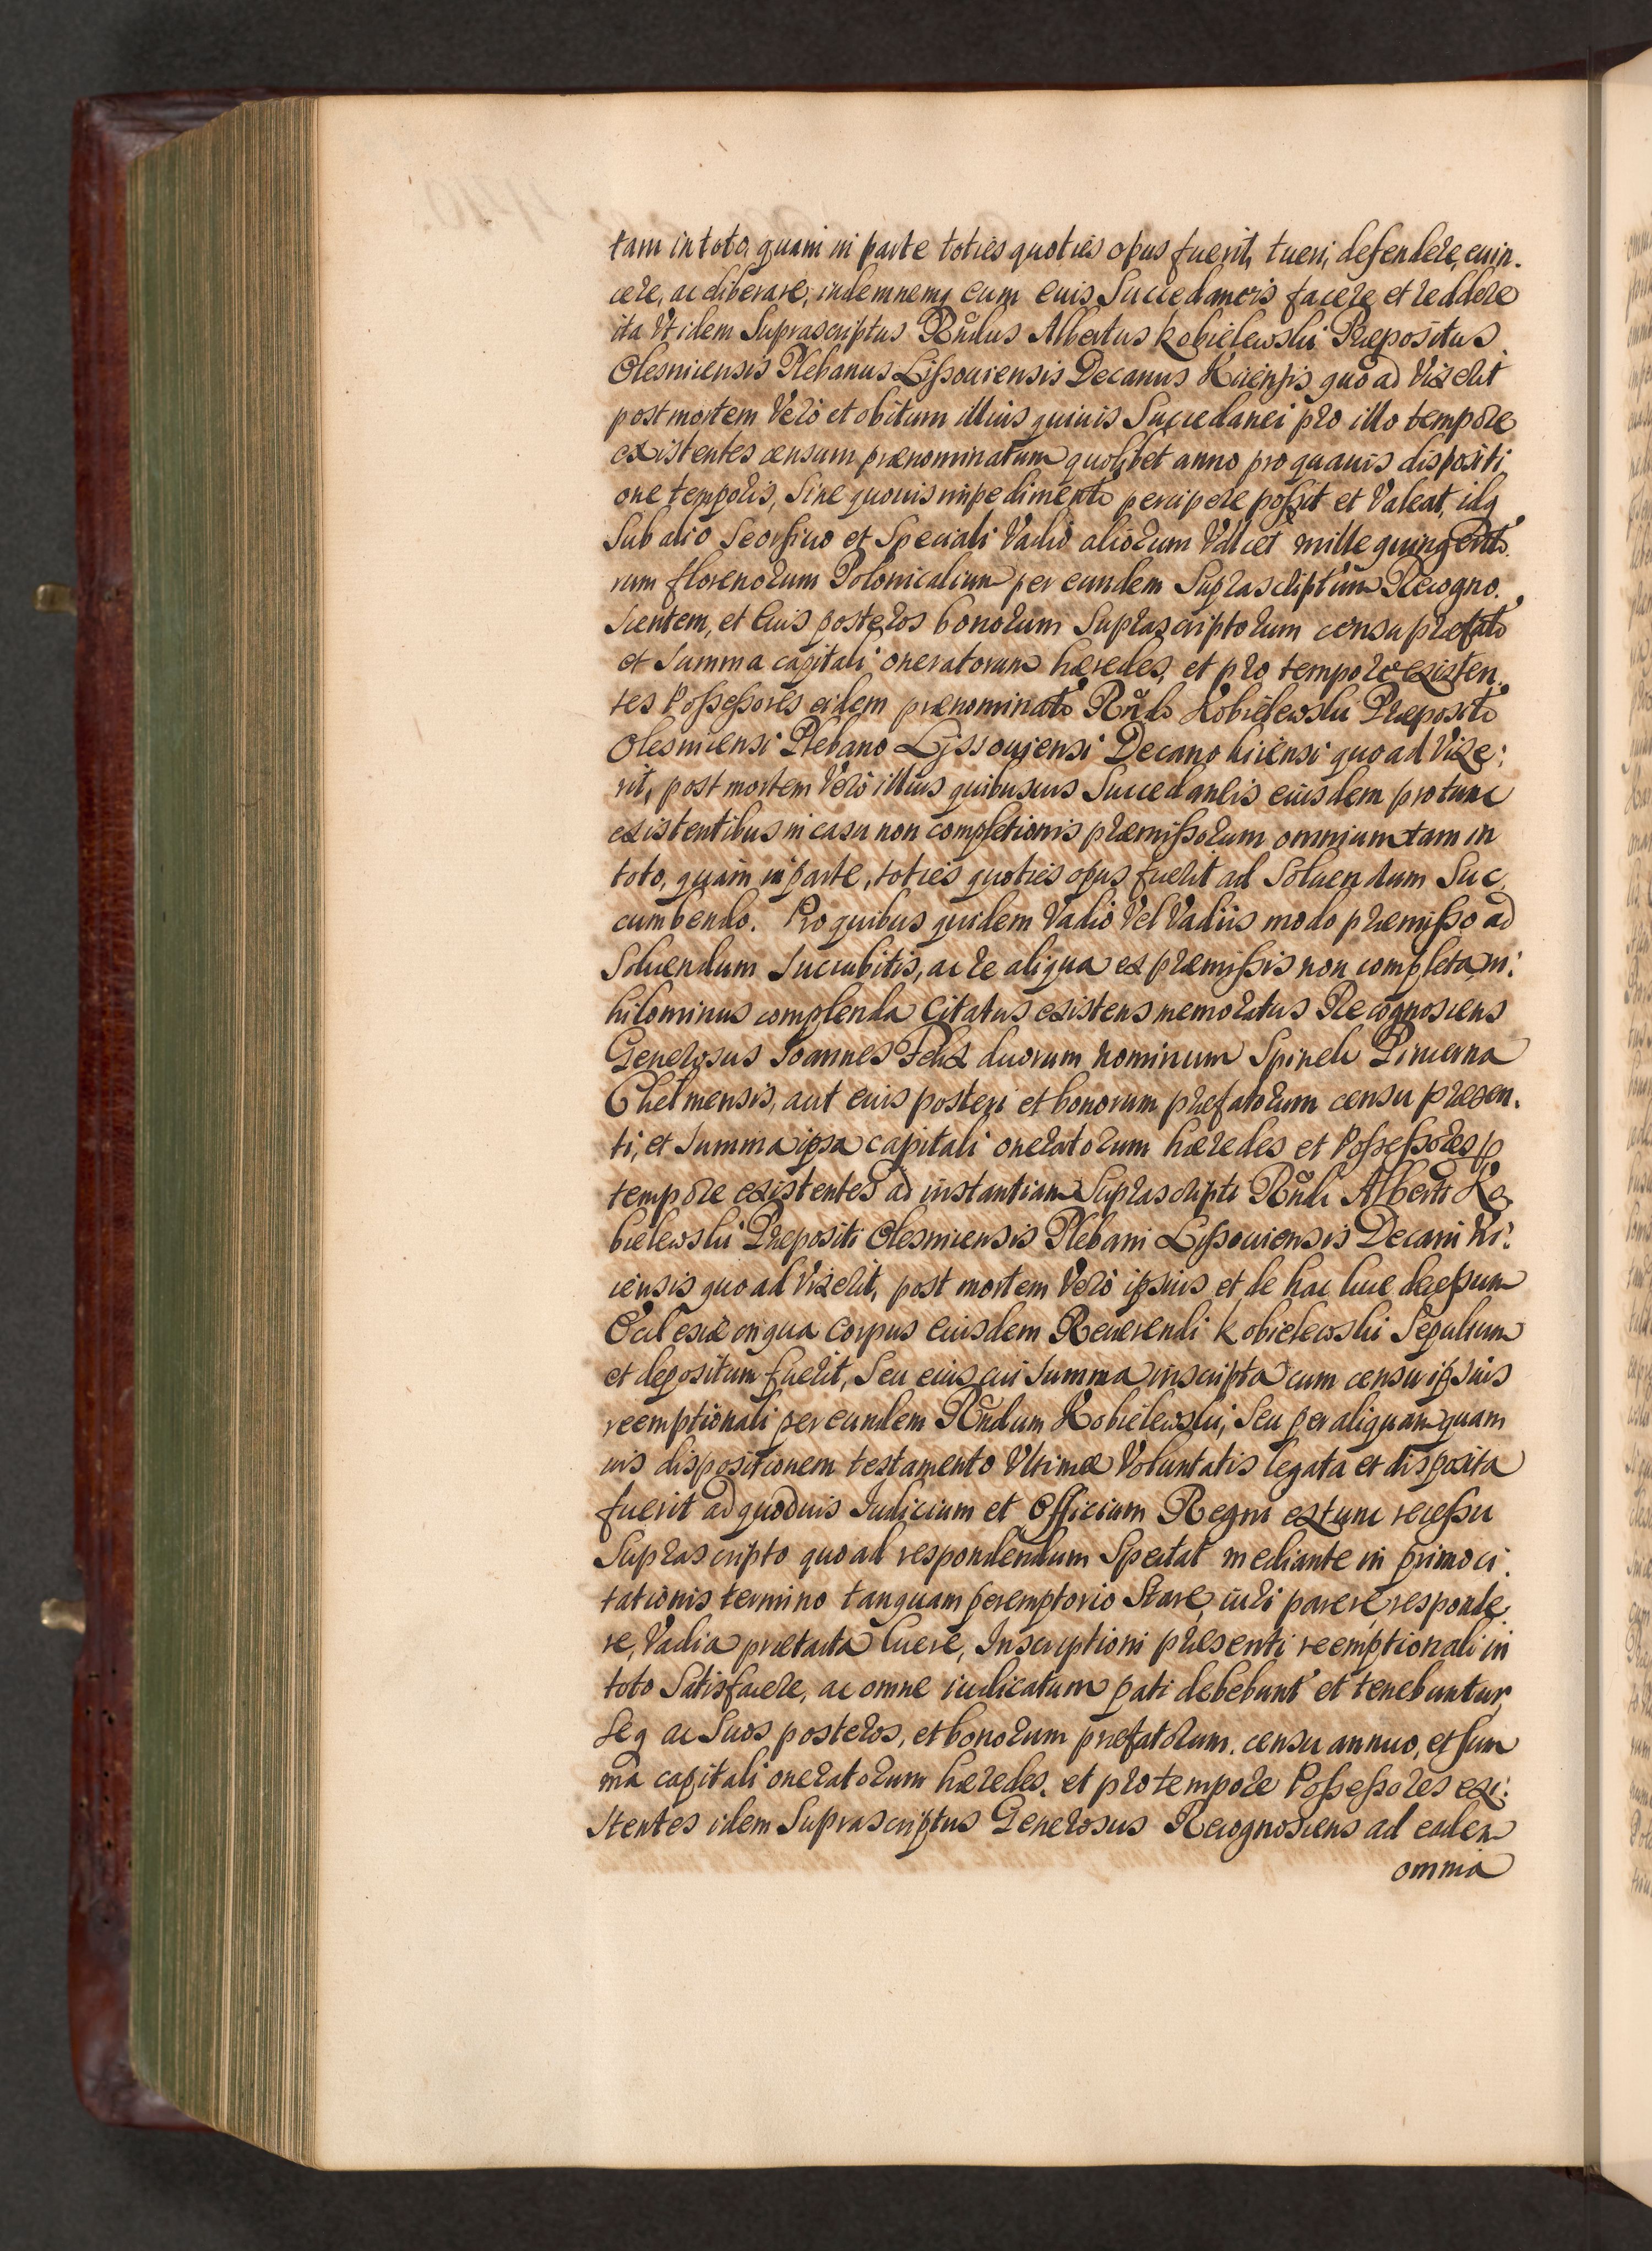 tam in toto quam in parte toties quoties opus fuerit, tueri, defendere, euin.
cere, ac liberare, indemnemq eum eius Succedaneis facere et reddere
ita Vt idem Suprascriptus Rndus Albertus Kobielewski Præpositus
Olesnicensis Plebanus Lissouiensis Decanus Kiiensis quo ad Vixerit
post mortem Vero et obitum illius quiuis Succedanei pro illo tempore
existentes censum prænominatum quolibet anno pro quauis dispositi
one temporis, Sine quouis impedimento percipere possit et Valeat, idq
Sub alio Seorsiuo et Speciali Vadio aliorum Vtlicet mille quingento.
rum florenorum Polonicalium per eundem Suprascriptum Recogno.
scentem, et Eius posteros bonorum Suprascriptorum censu præfato
et Summa capitali oneratorum hæredes, et pro tempore existen.
tes Possessores eidem prænominato Rndo Kobielewski Præposito
Olesnicensi Plebano Lissouiensi Decano kiiensi quo ad Vixe:
rit, post mortem Vero illius quibusuis Succedaneis eiusdem pro tunc
existentibus in casu non completionis præmissorum omnium tam in
toto, quam in parte, toties quoties opus fuerit ad Soluendum Suc
cumbendo. Pro quibus quidem Vadio Vel Vadiis modo præmisso ad
Soluendum Succubitis, ac re aliqua ex præmissis non completa, ni:
hilominus complenda Citatus existens memoratus Recognoscens
Generosus Joannes Felix duorum nominum Spinek Pincerna
Chelmensis, aut eius posteri et bonorum præfatorum censu præsen.
ti, et Summa ipsa capitali oneratorum hæredes et Possessores p
tempore existentes ad instantiam Suprascripti Rndi Alberti Ko
bielewski Præpositi Olesnicensis Plebani Lissouiensis Decani Ki:
iensis quo ad Vixerit, post mortem Vero ipsius et de hac luce decessum
Ecclesiæ in qua Corpus Eiusdem Reuerendi Kobielewski Sepultum
et depositum fuerit, Seu eius cui Summa inscripta cum censu ipsius
reemptionali per eundem Rndum Kobielewski, Seu per aliquam quam
uis dispositionem testamento Vltimæ Voluntatis legata et disposita
fuerit ad quoduis Iudicium et Officium Regni ex tunc recessu
Suprascripto quo ad respondendum Spectat mediante in primo ci.
tationis termino tanquam peremptorio Stare, iuri parere, responde.
re, Vadia prætacta luere, Inscriptioni præsenti reemptionali in
toto Satisfacere, ac omne iudicatum pati debebunt et tenebuntur,
Se q ac Suos posteros, et bonorum præfatorum, censu annuo, et Sum
ma capitali oneratorum hæredes, et pro tempore Possessores exi:
stentes idem Suprascriptus Generosus Recognoscens ad eadem
omnia